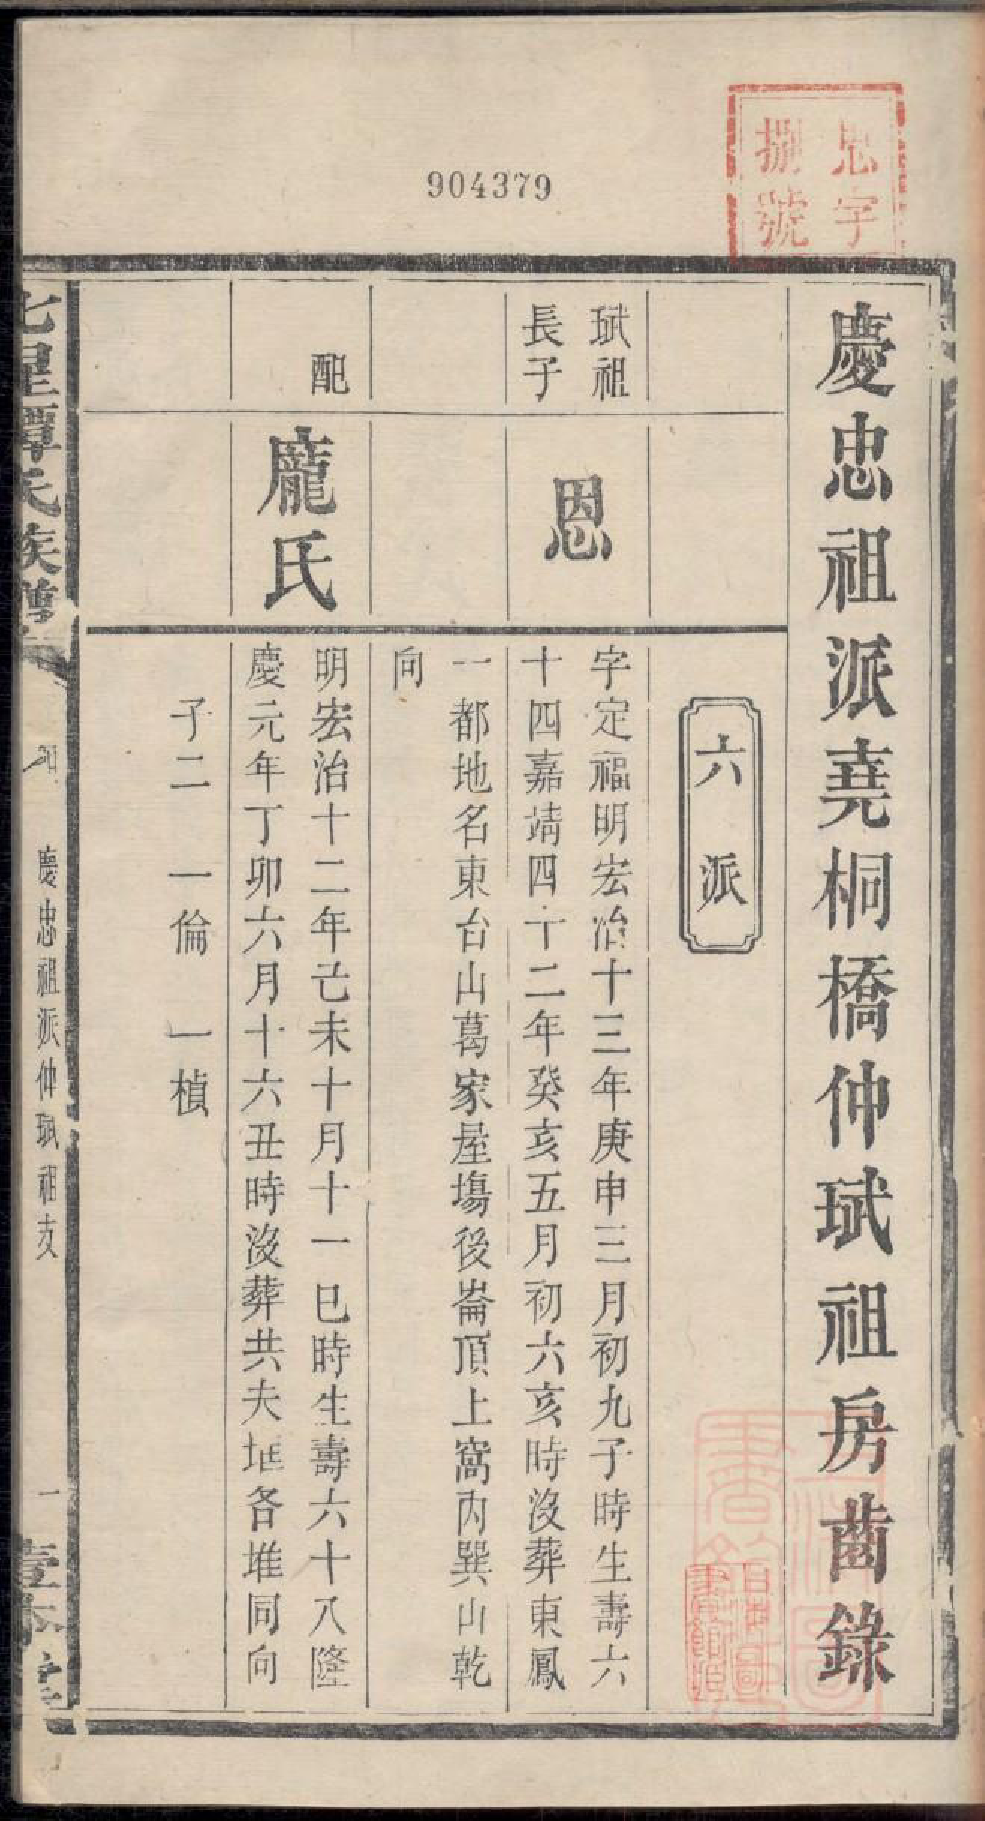 904379
思字
捌號
慶忠祖派堯桐橋仲珷祖房齒錄
六派
珷祖
長子
恩
字定福明宏治十三年庚申三月初九子時生壽六
十四嘉靖四十二年癸亥五月初六亥時沒葬東鳳
一都地名東台山葛家屋塲後崙頂上窩內巽山乾
向
配
龐氏
明宏治十二年己未十月十一巳時生壽六十八隆
慶元年丁卯六月十六丑時沒葬共夫垣各堆同向
子二 一倫 一楨
七星譚氏族譜
慶忠祖派仲珷祖支
一
壹本堂